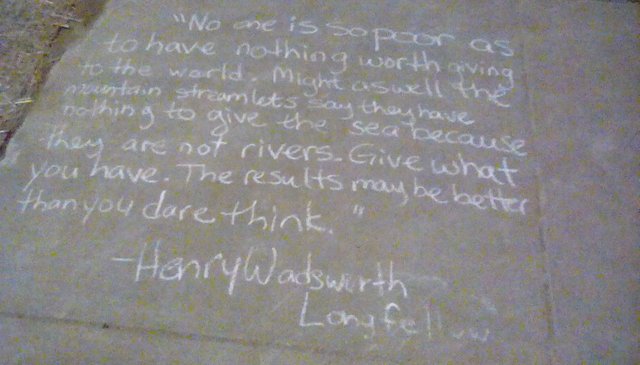 "No one is so poor as
to have nothing worth giving
to the world. Might aswell the
mountain streamlets say they have
nothing to give the sea because
they are not rivers. Give what
you have. The results may be better
than you dare think."
-Henry Wadsworth
Longfellow